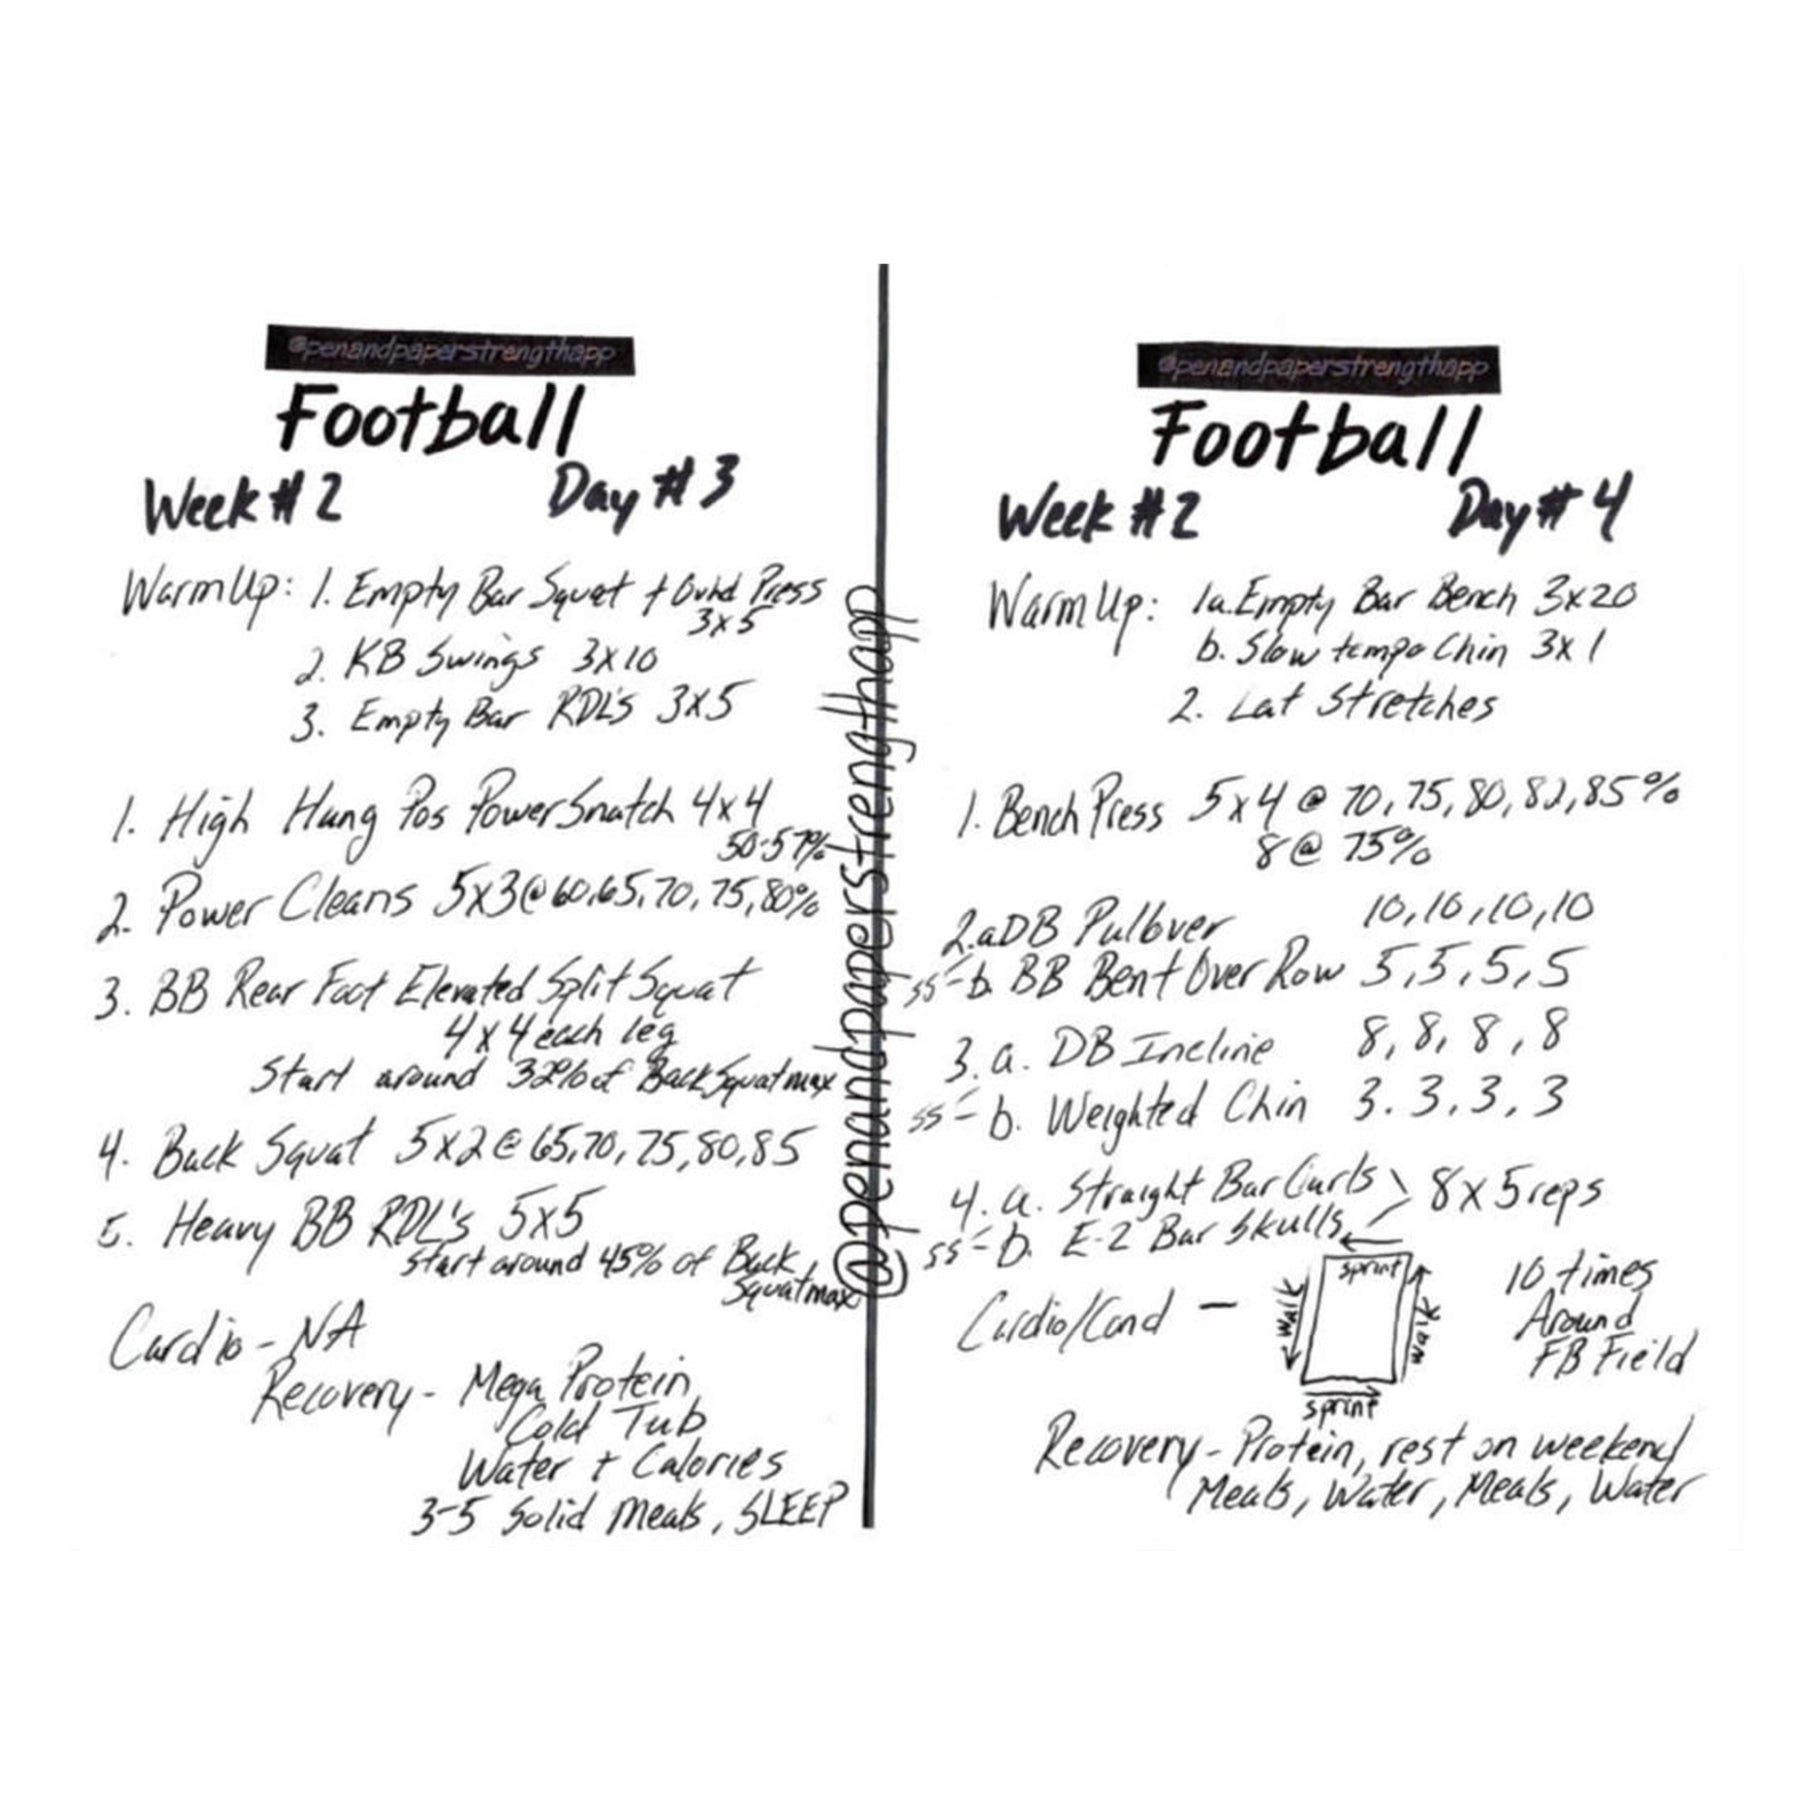 @penandpaperstrengthapp
Football
Week #2 Day #3
Warm Up: 1. Empty Bar Squat + Ovhd Press
3x5
2. KB Swings 3x10
3. Empty Bar RDL's 3x5
1. High Hang Pos Power Snatch 4x4
50-57%
2. Power Cleans 5x3@60,65,70,75,80%
3. BB Rear Foot Elevated Split Squat
4x4 each leg
Start around 32% of Back Squat max
4. Back Squat 5x2@65,70,75,80,85
5. Heavy BB RDL's 5x5
Start around 45% of Back
Squat max
Cardio - NA
Recovery - Mega Protein
Cold Tub
Water + Calories
3-5 Solid Meals, SLEEP
@penandpaperstrengthapp
@penandpaperstrengthapp
Football
Week #2 Day #4
Warm Up: 1a. Empty Bar Bench 3x20
b. Slow tempo Chin 3x1
2. Lat Stretches
1. Bench Press 5x4 @ 70,75,80,82,85%
8@ 75%
2.a DB Pullover 10,10,10,10
ss - b. BB Bent Over Row 5,5,5,5
3. a. DB Incline 8,8,8,8
ss - b. Weighted Chin 3.3,3,3
4. a. Straight Bar Curls > 8x5 reps
ss - b. E-Z Bar Skulls
Cardio/Cond -
sprint
walk
walk
sprint
10 times
Around
FB Field
Recovery - Protein, rest on weekend
Meals, Water, Meals, Water